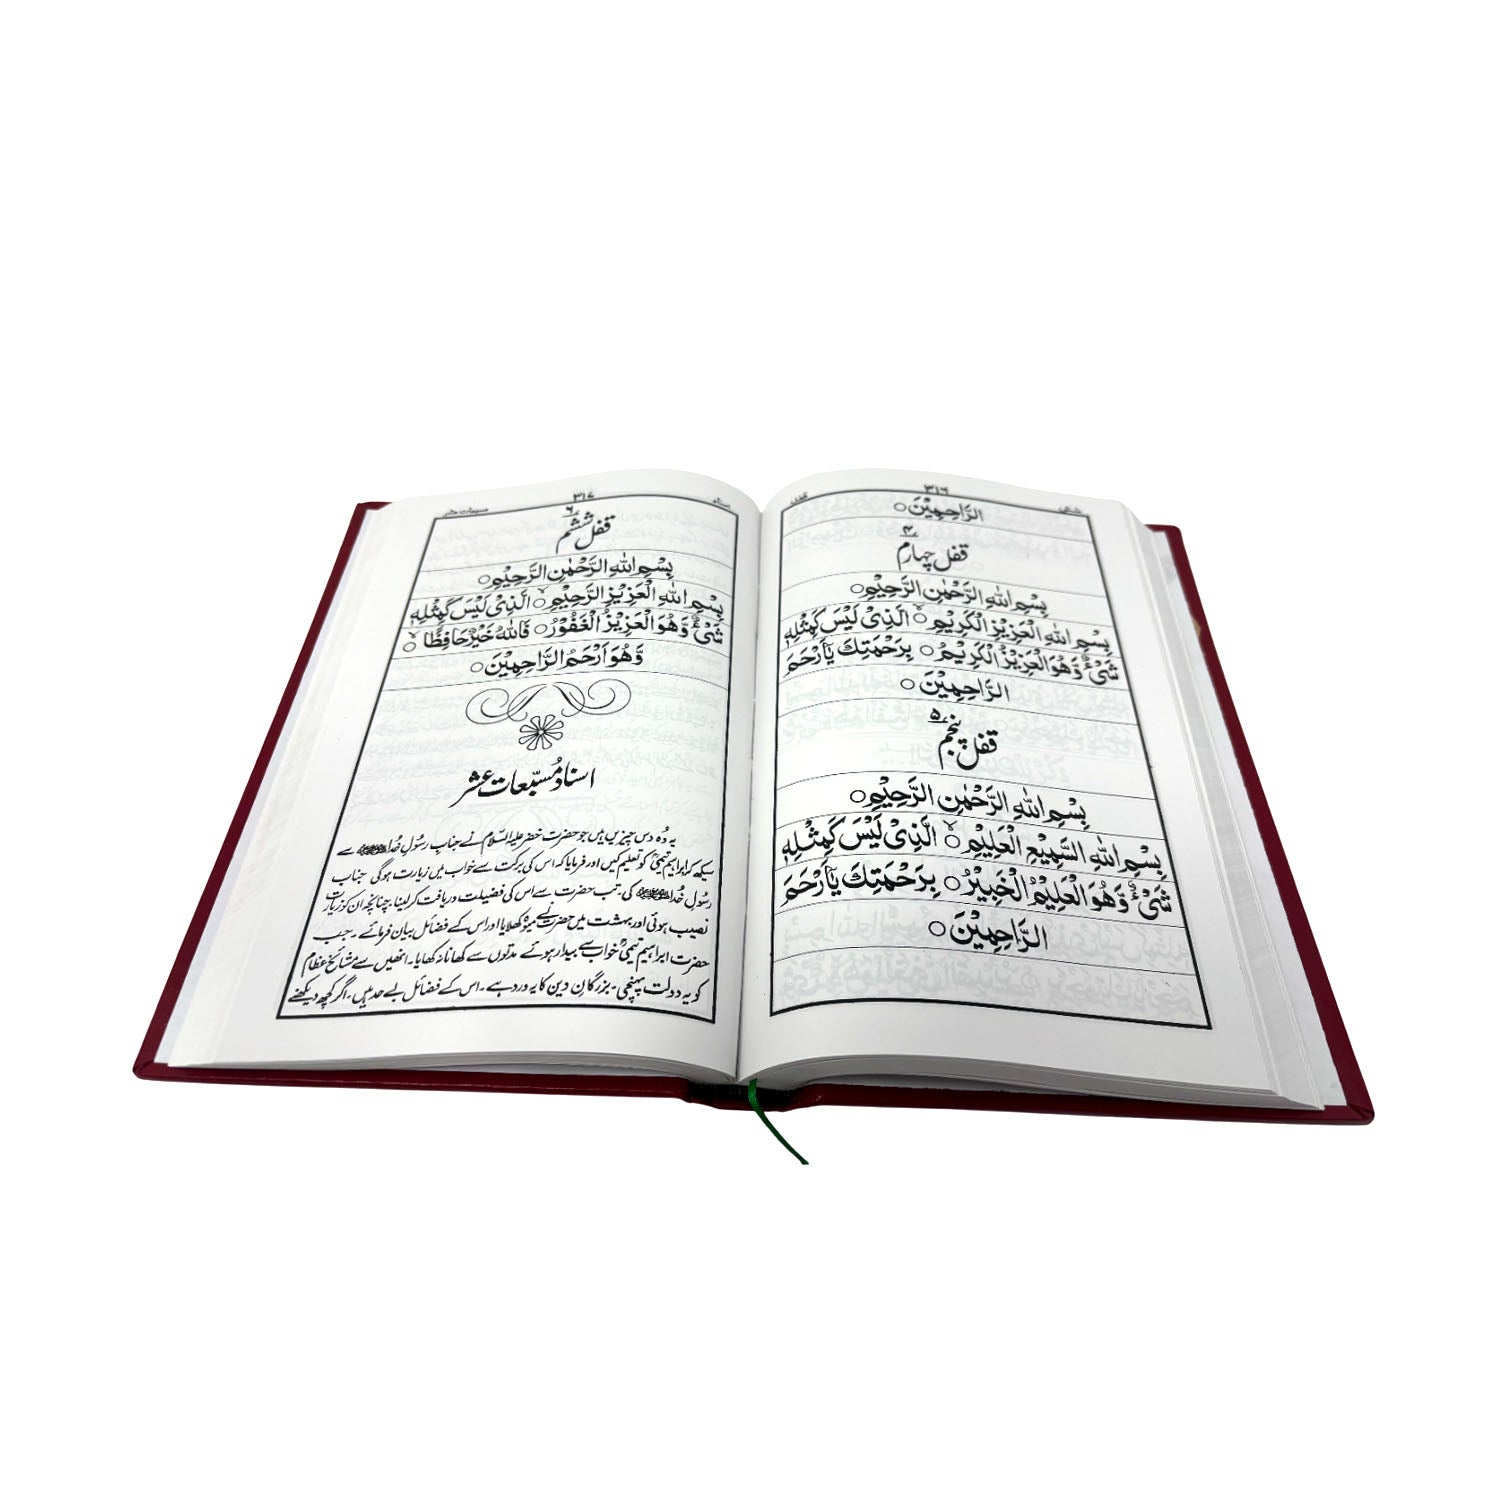 ۳۱۶
الرَّاحِمِیْنَ○
قفل چہارم ۴
بِسْمِ اللهِ الرَّحْمٰنِ الرَّحِیْمِ○
بِسْمِ اللهِ الْعَزِیْزِ الْكَرِیْمِ ۙ الَّذِیْ لَیْسَ كَمِثْلِهٖ
شَیْءٌ وَّهُوَ الْعَزِیْزُ الْكَرِیْمُ○ بِرَحْمَتِكَ یَا اَرْحَمَ
الرَّاحِمِیْنَ○
قفل پنجم ۵
بِسْمِ اللهِ الرَّحْمٰنِ الرَّحِیْمِ○
بِسْمِ اللهِ السَّمِیْعِ الْعَلِیْمِ ۙ الَّذِیْ لَیْسَ كَمِثْلِهٖ
شَیْءٌ وَّهُوَ الْعَلِیْمُ الْخَبِیْرُ○ بِرَحْمَتِكَ یَا اَرْحَمَ
الرَّاحِمِیْنَ○
اسناد ۳۱۷ مسبعات عشر
قفل ششم ۶
بِسْمِ اللهِ الرَّحْمٰنِ الرَّحِیْمِ○
بِسْمِ اللهِ الْعَزِیْزِ الرَّحِیْمِ ۙ الَّذِیْ لَیْسَ كَمِثْلِهٖ
شَیْءٌ وَّهُوَ الْعَزِیْزُ الْغَفُوْرُ○ فَاللهُ خَیْرٌ حَافِظًا ۙ
وَّهُوَ اَرْحَمُ الرَّاحِمِیْنَ○
اسناد مُسبّعات عشر
یہ وُہ دس چیزیں ہیں جو حضرت خضر علیہ السّلام نے جناب رسُولِ خُدا ﷺ سے
سیکھ کر ابراہیم تیمیؒ کو تعلیم کیں اور فرمایا کہ اس کی برکت سے خواب میں زیارت ہوگی جناب
رسُولِ خُدا ﷺ کی۔ تب حضرت سے اس کی فضیلت دریافت کر لینا۔ چنانچہ ان کو زیارت
نصیب ہوئی اور بہشت میں حضرت نے میوہ کھلایا اور اس کے فضائل بیان فرمائے۔ جب
حضرت ابراہیم تیمیؒ خواب سے بیدار ہوئے مدتوں سے کھانا نہ کھایا۔ انھیں سے مشائخ عظام
کو یہ دولت پہنچی۔ بزرگان دین کا یہ ورد ہے۔ اس کے فضائل بے حد ہیں۔ اگر کچھ دیکھنے